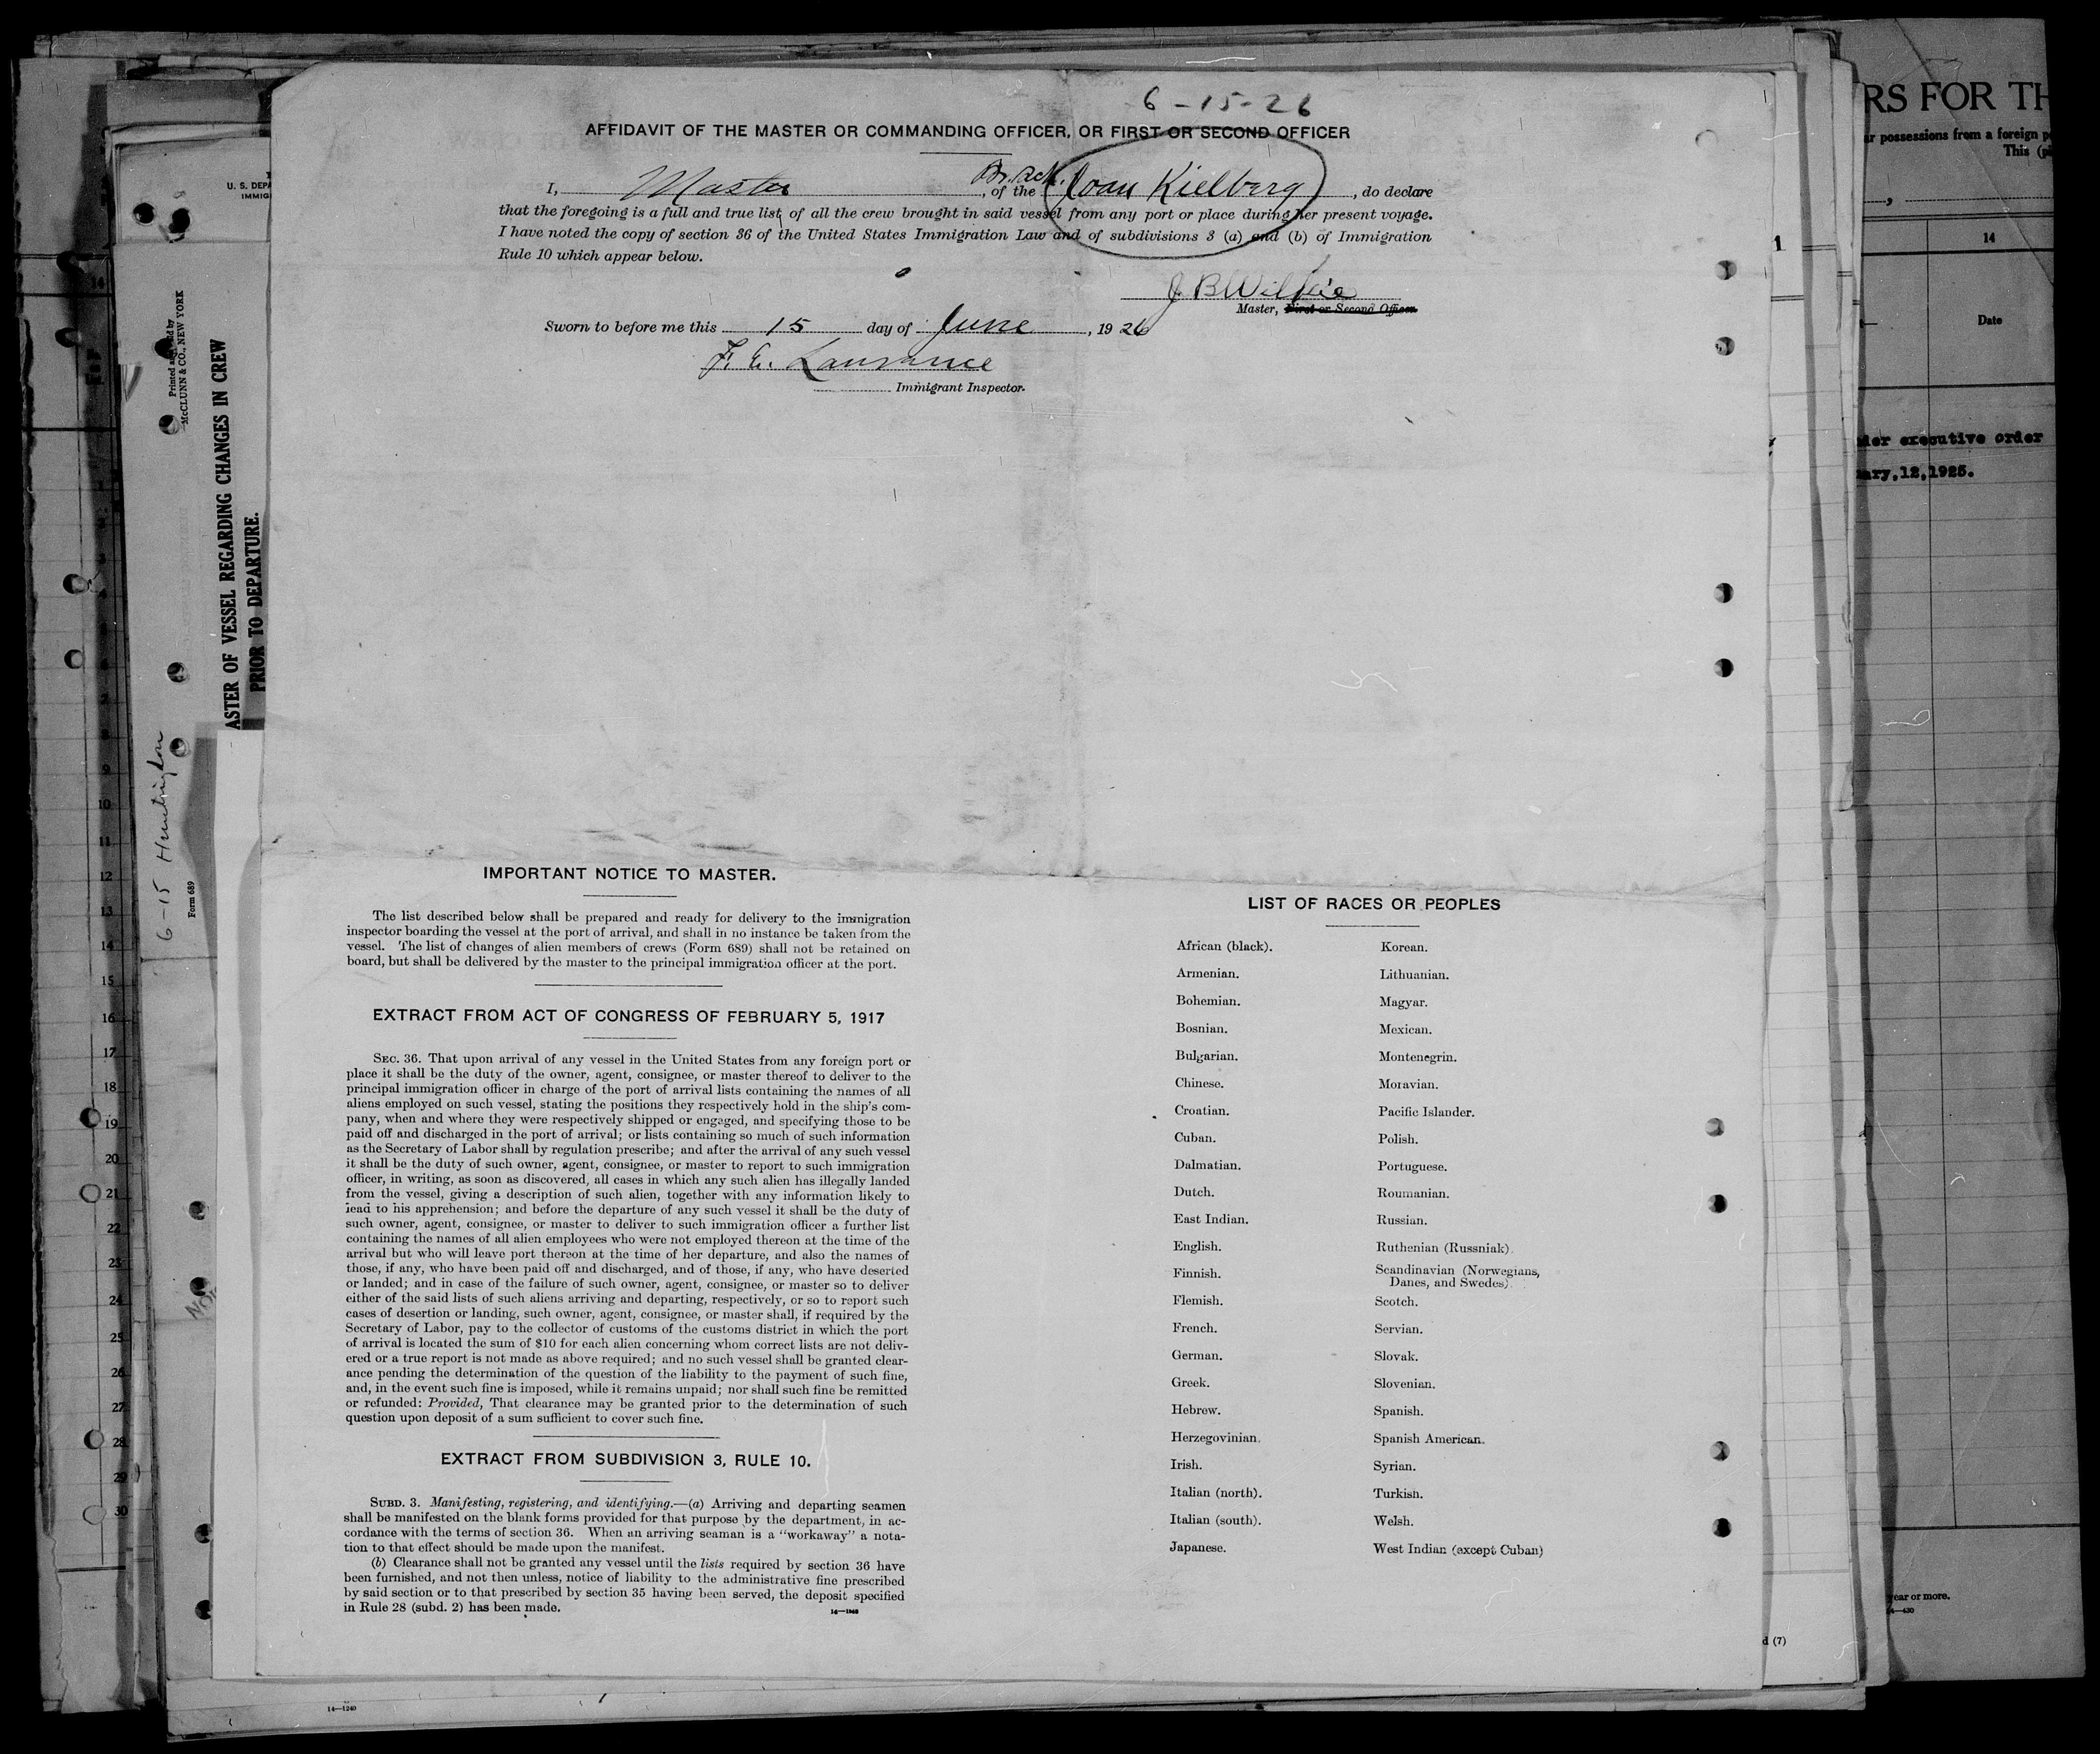 6-15-26
AFFIDAVIT OF THE MASTER OR COMMANDING OFFICER, OR FIRST OR SECOND OFFICER
I, Master, of the Br. Sch. Joan Kielberg, do declare
that the foregoing is a full and true list of all the crew brought in said vessel from any port or place during her present voyage.
I have noted the copy of section 36 of the United States Immigration Law and of subdivisions 3 (a) and (b) of Immigration
Rule 10 which appear below.
J B Wilkie
Master, First or Second Officer.
Sworn to before me this 15 day of June, 1926
F. E. Lawrance
Immigrant Inspector.
IMPORTANT NOTICE TO MASTER.
The list described below shall be prepared and ready for delivery to the immigration
inspector boarding the vessel at the port of arrival, and shall in no instance be taken from the
vessel. The list of changes of alien members of crews (Form 689) shall not be retained on
board, but shall be delivered by the master to the principal immigration officer at the port.
EXTRACT FROM ACT OF CONGRESS OF FEBRUARY 5, 1917
SEC. 36. That upon arrival of any vessel in the United States from any foreign port or
place it shall be the duty of the owner, agent, consignee, or master thereof to deliver to the
principal immigration officer in charge of the port of arrival lists containing the names of all
aliens employed on such vessel, stating the positions they respectively hold in the ship's com-
pany, when and where they were respectively shipped or engaged, and specifying those to be
paid off and discharged in the port of arrival; or lists containing so much of such information
as the Secretary of Labor shall by regulation prescribe; and after the arrival of any such vessel
it shall be the duty of such owner, agent, consignee, or master to report to such immigration
officer, in writing, as soon as discovered, all cases in which any such alien has illegally landed
from the vessel, giving a description of such alien, together with any information likely to
lead to his apprehension; and before the departure of any such vessel it shall be the duty of
such owner, agent, consignee, or master to deliver to such immigration officer a further list
containing the names of all alien employees who were not employed thereon at the time of the
arrival but who will leave port thereon at the time of her departure, and also the names of
those, if any, who have been paid off and discharged, and of those, if any, who have deserted
or landed; and in case of the failure of such owner, agent, consignee, or master so to deliver
either of the said lists of such aliens arriving and departing, respectively, or so to report such
cases of desertion or landing, such owner, agent, consignee, or master shall, if required by the
Secretary of Labor, pay to the collector of customs of the customs district in which the port
of arrival is located the sum of $10 for each alien concerning whom correct lists are not deliv-
ered or a true report is not made as above required; and no such vessel shall be granted clear-
ance pending the determination of the question of the liability to the payment of such fine,
and, in the event such fine is imposed, while it remains unpaid; nor shall such fine be remitted
or refunded: Provided, That clearance may be granted prior to the determination of such
question upon deposit of a sum sufficient to cover such fine.
EXTRACT FROM SUBDIVISION 3, RULE 10.
SUBD. 3. Manifesting, registering, and identifying.—(a) Arriving and departing seamen
shall be manifested on the blank forms provided for that purpose by the department, in ac-
cordance with the terms of section 36. When an arriving seaman is a "workaway" a nota-
tion to that effect should be made upon the manifest.
(b) Clearance shall not be granted any vessel until the lists required by section 36 have
been furnished, and not then unless, notice of liability to the administrative fine prescribed
by said section or to that prescribed by section 35 having been served, the deposit specified
in Rule 28 (subd. 2) has been made.
LIST OF RACES OR PEOPLES
African (black).
Armenian.
Bohemian.
Bosnian.
Bulgarian.
Chinese.
Croatian.
Cuban.
Dalmatian.
Dutch.
East Indian.
English.
Finnish.
Flemish.
French.
German.
Greek.
Hebrew.
Herzegovinian.
Irish.
Italian (north).
Italian (south).
Japanese.
Korean.
Lithuanian.
Magyar.
Mexican.
Montenegrin.
Moravian.
Pacific Islander.
Polish.
Portuguese.
Roumanian.
Russian.
Ruthenian (Russniak).
Scandinavian (Norwegians,
Danes, and Swedes).
Scotch.
Servian.
Slovak.
Slovenian.
Spanish.
Spanish American.
Syrian.
Turkish.
Welsh.
West Indian (except Cuban)
14—1240
U. S. DEPA
IMMIG
McCLUNN & CO., NEW YORK
ASTER OF VESSEL REGARDING CHANGES IN CREW
PRIOR TO DEPARTURE.
6-15 Huntington
Form 689
14
9
10
11
12
13
14
15
16
17
18
19
20
21
22
23
24
25
26
27
28
29
30
RS FOR TH
ar possessions from a foreign p
This (p
14
Date
1
der executive order
ary,12,1925.
year or more.
d (7)